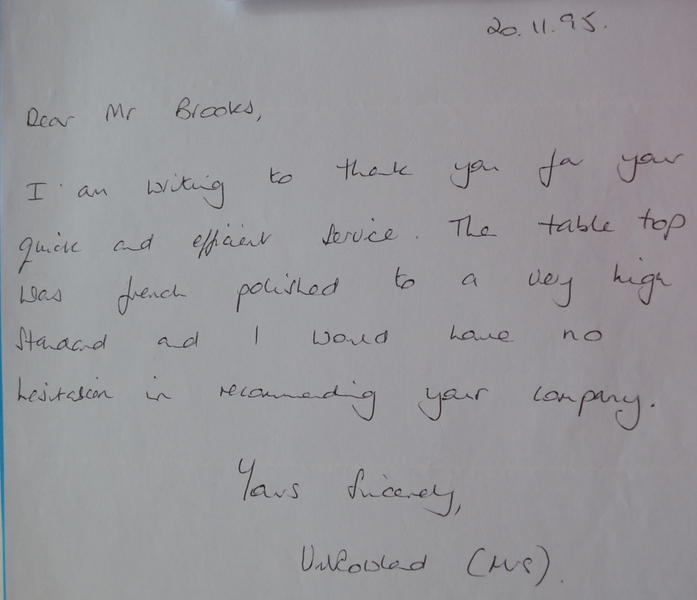 20.11.95.
Dear Mr Brooks,
I am writing to thank you for your
quick and efficient service. The table top
was french polished to a very high
standard and I would have no
hesitation in recommending your company.
Yours Sincerely,
(Mrs).